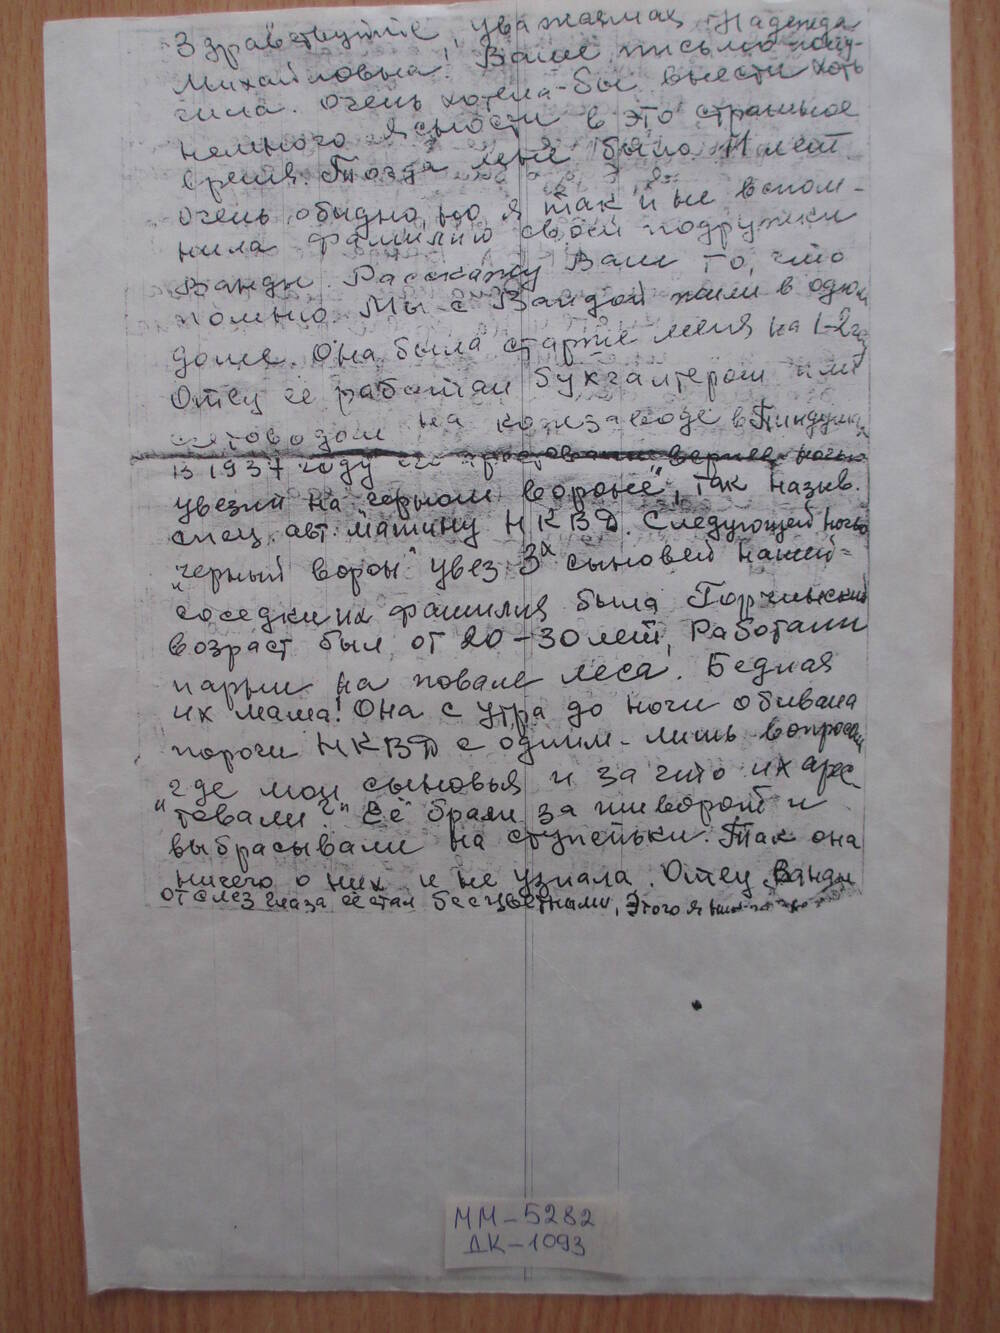 Здравствуйте, уважаемая Надежда
Михайловна! Ваше письмо полу-
чила. Очень хотела-бы внести хоть
немного ясности в это страшное
время. Тогда мне было 11 лет.
Очень обидно, но я так и не вспом-
нила фамилию своей подружки
Ванды. Расскажу Вам то, что
помню. Мы с Вандой жили в одном
доме. Она была старше меня на 1-2 г.
Отец её работал бухгалтером или
счетоводом на конзаводе в Пиндуши
в 1937 году его арестовали вернее ночью
увезли на "черном вороне", так назыв.
спец. авт. машину НКВД. Следующей ночью
"черный ворон" увез 3х сыновей нашей
соседки их фамилия была Горчинский
возраст был от 20-30 лет, Работали
парни на повале леса. Бедная
их мама! Она с утра до ночи обивала
пороги НКВД с одним-лишь вопросом
где мои сыновья и за что их арес-
"товали?" Её брали за шиворот и
выбрасывали на ступеньки. Так она
ничего о них и не узнала. Отец Ванды
от слез глаза её стали бесцветными, Этого я
ММ-5282
ДК-1093